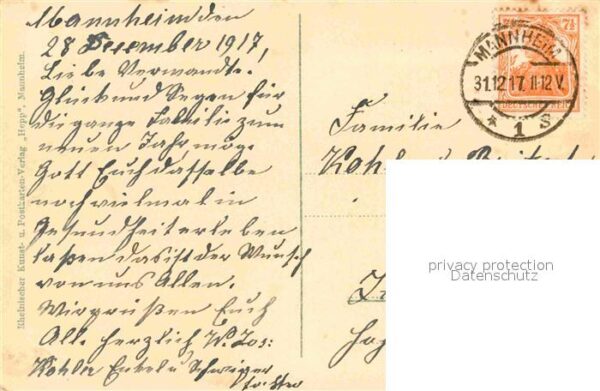 Mannheim den
28 Desember 1917,
Liebe Verwandte.
Glück und Segen für
die ganze Familie zum
neuen Jahr möge
Gott Euch dasselbe
noch vielmal in
Gesundheit erleben
laßen das ist der Wunsch
von uns Allen.
Wir grüßen Euch
Alle herzlich Ww. Jos:
Kohler Enkel u Schwieger
tochter
Rheinischer Kunst- u. Postkarten-Verlag „Hepp", Mannheim.
7½
DEUTSCHES REICH
MANNHEIM
31.12.17. 11-12 V.
* 1 s
Familie
Kohler
privacy protection
Datenschutz